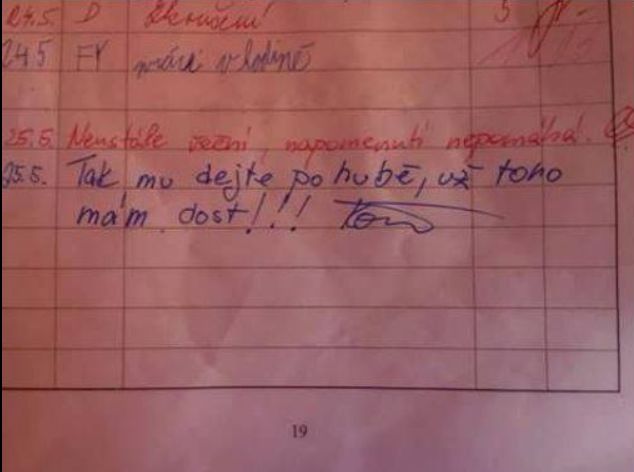 24.5. D Zkoušení 5
24.5 FY práce v hodině 1
25.5. Neustále ruší, napomenutí nepomáhá.
25.5. Tak mu dejte po hubě, už toho
mám dost!!!
19